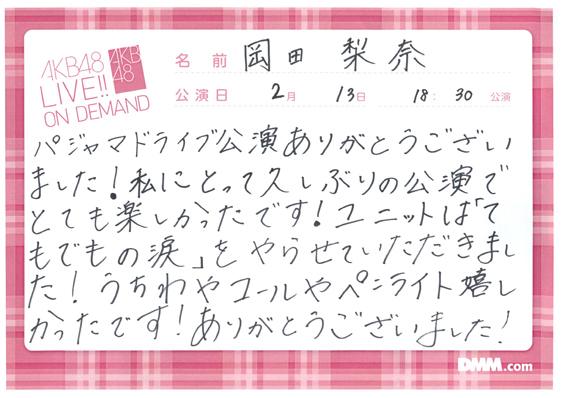 AKB48
LIVE!!
ON DEMAND
AKB
48
名前 岡田 梨奈
公演日 2月 13日 18:30 公演
パジャマドライブ公演ありがとうござい
ました!私にとって久しぶりの公演で
とても楽しかったです!ユニットは「て
もでもの涙」をやらせていただきまし
た!うちわやコールやペンライト嬉し
かったです!ありがとうございました!
DMM.com